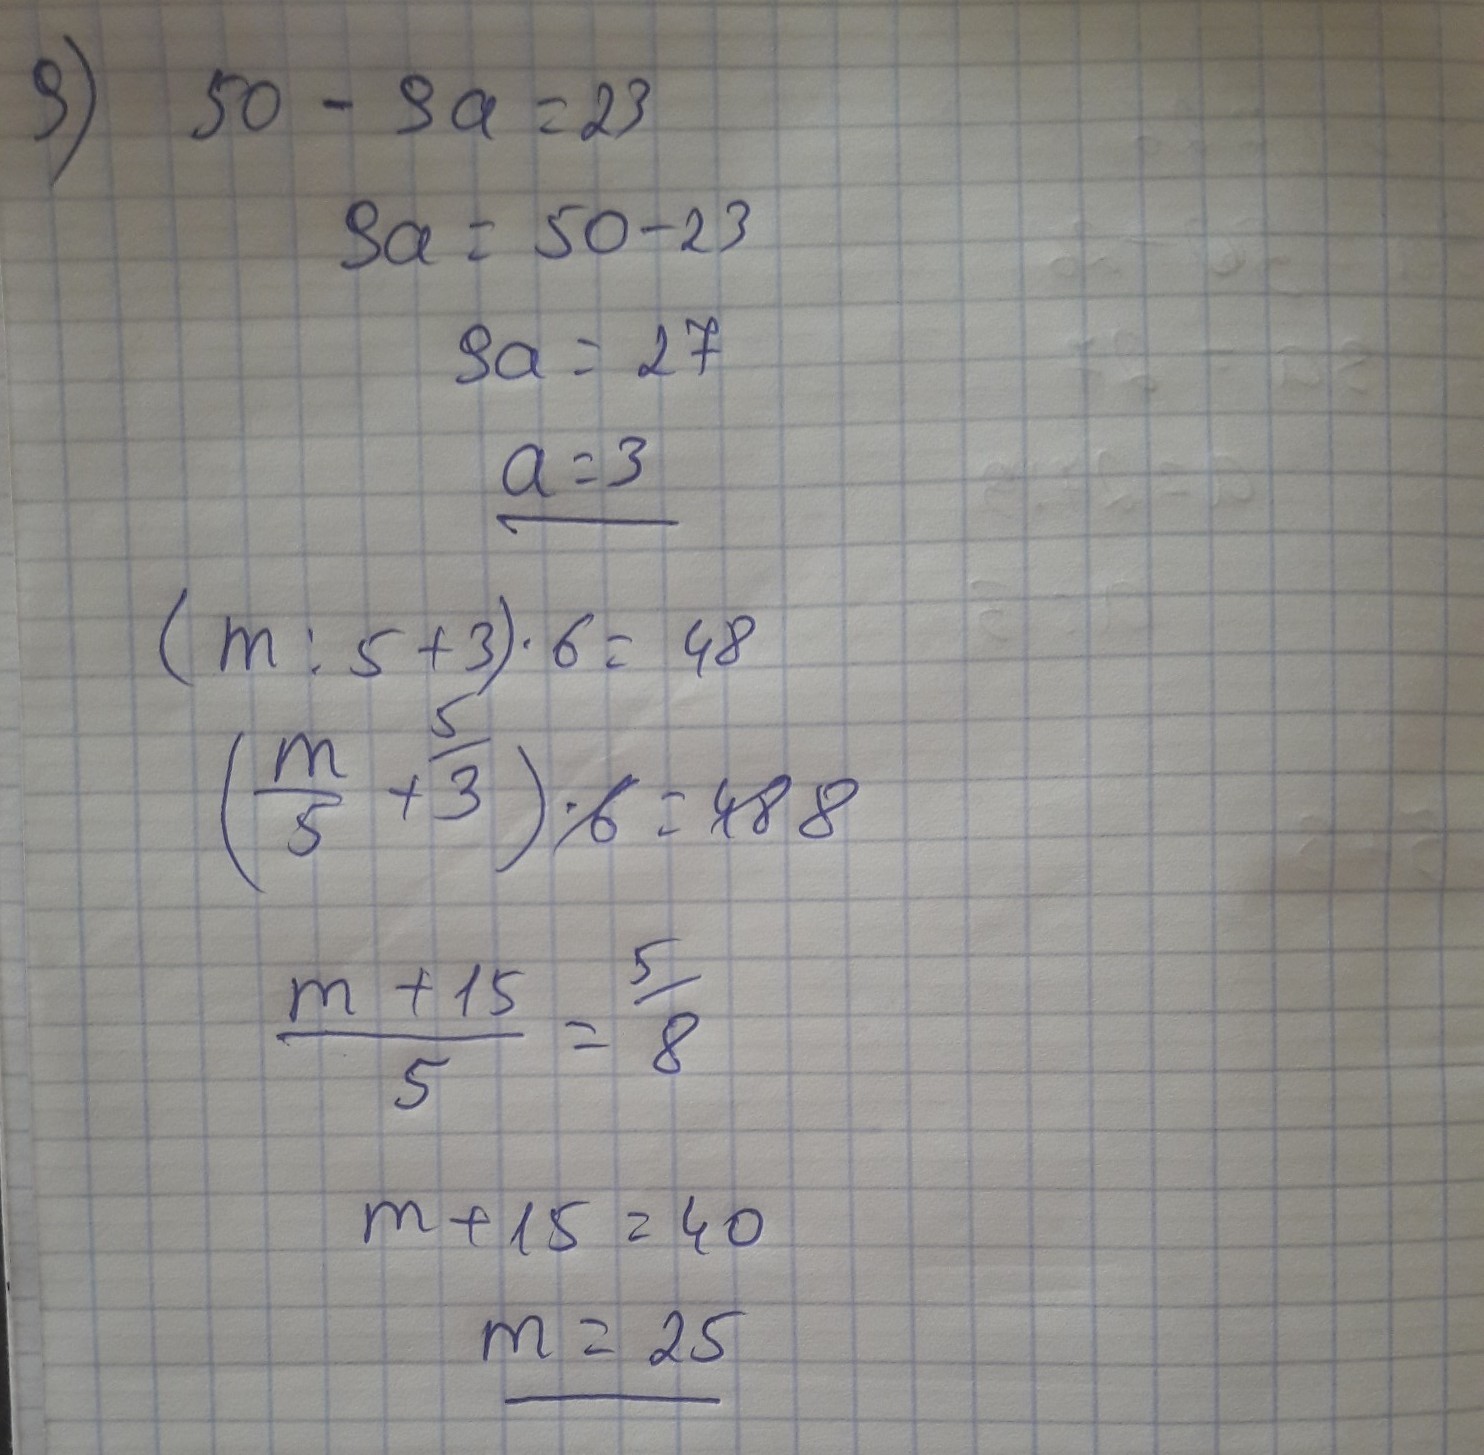 9) 50 - 9a = 23
9a = 50 - 23
9a = 27
a = 3
(m : 5 + 3) · 6 = 48
(m/5 + 5/3) · 6 = 48 8
(m + 15)/5 = 5/8
m + 15 = 40
m = 25